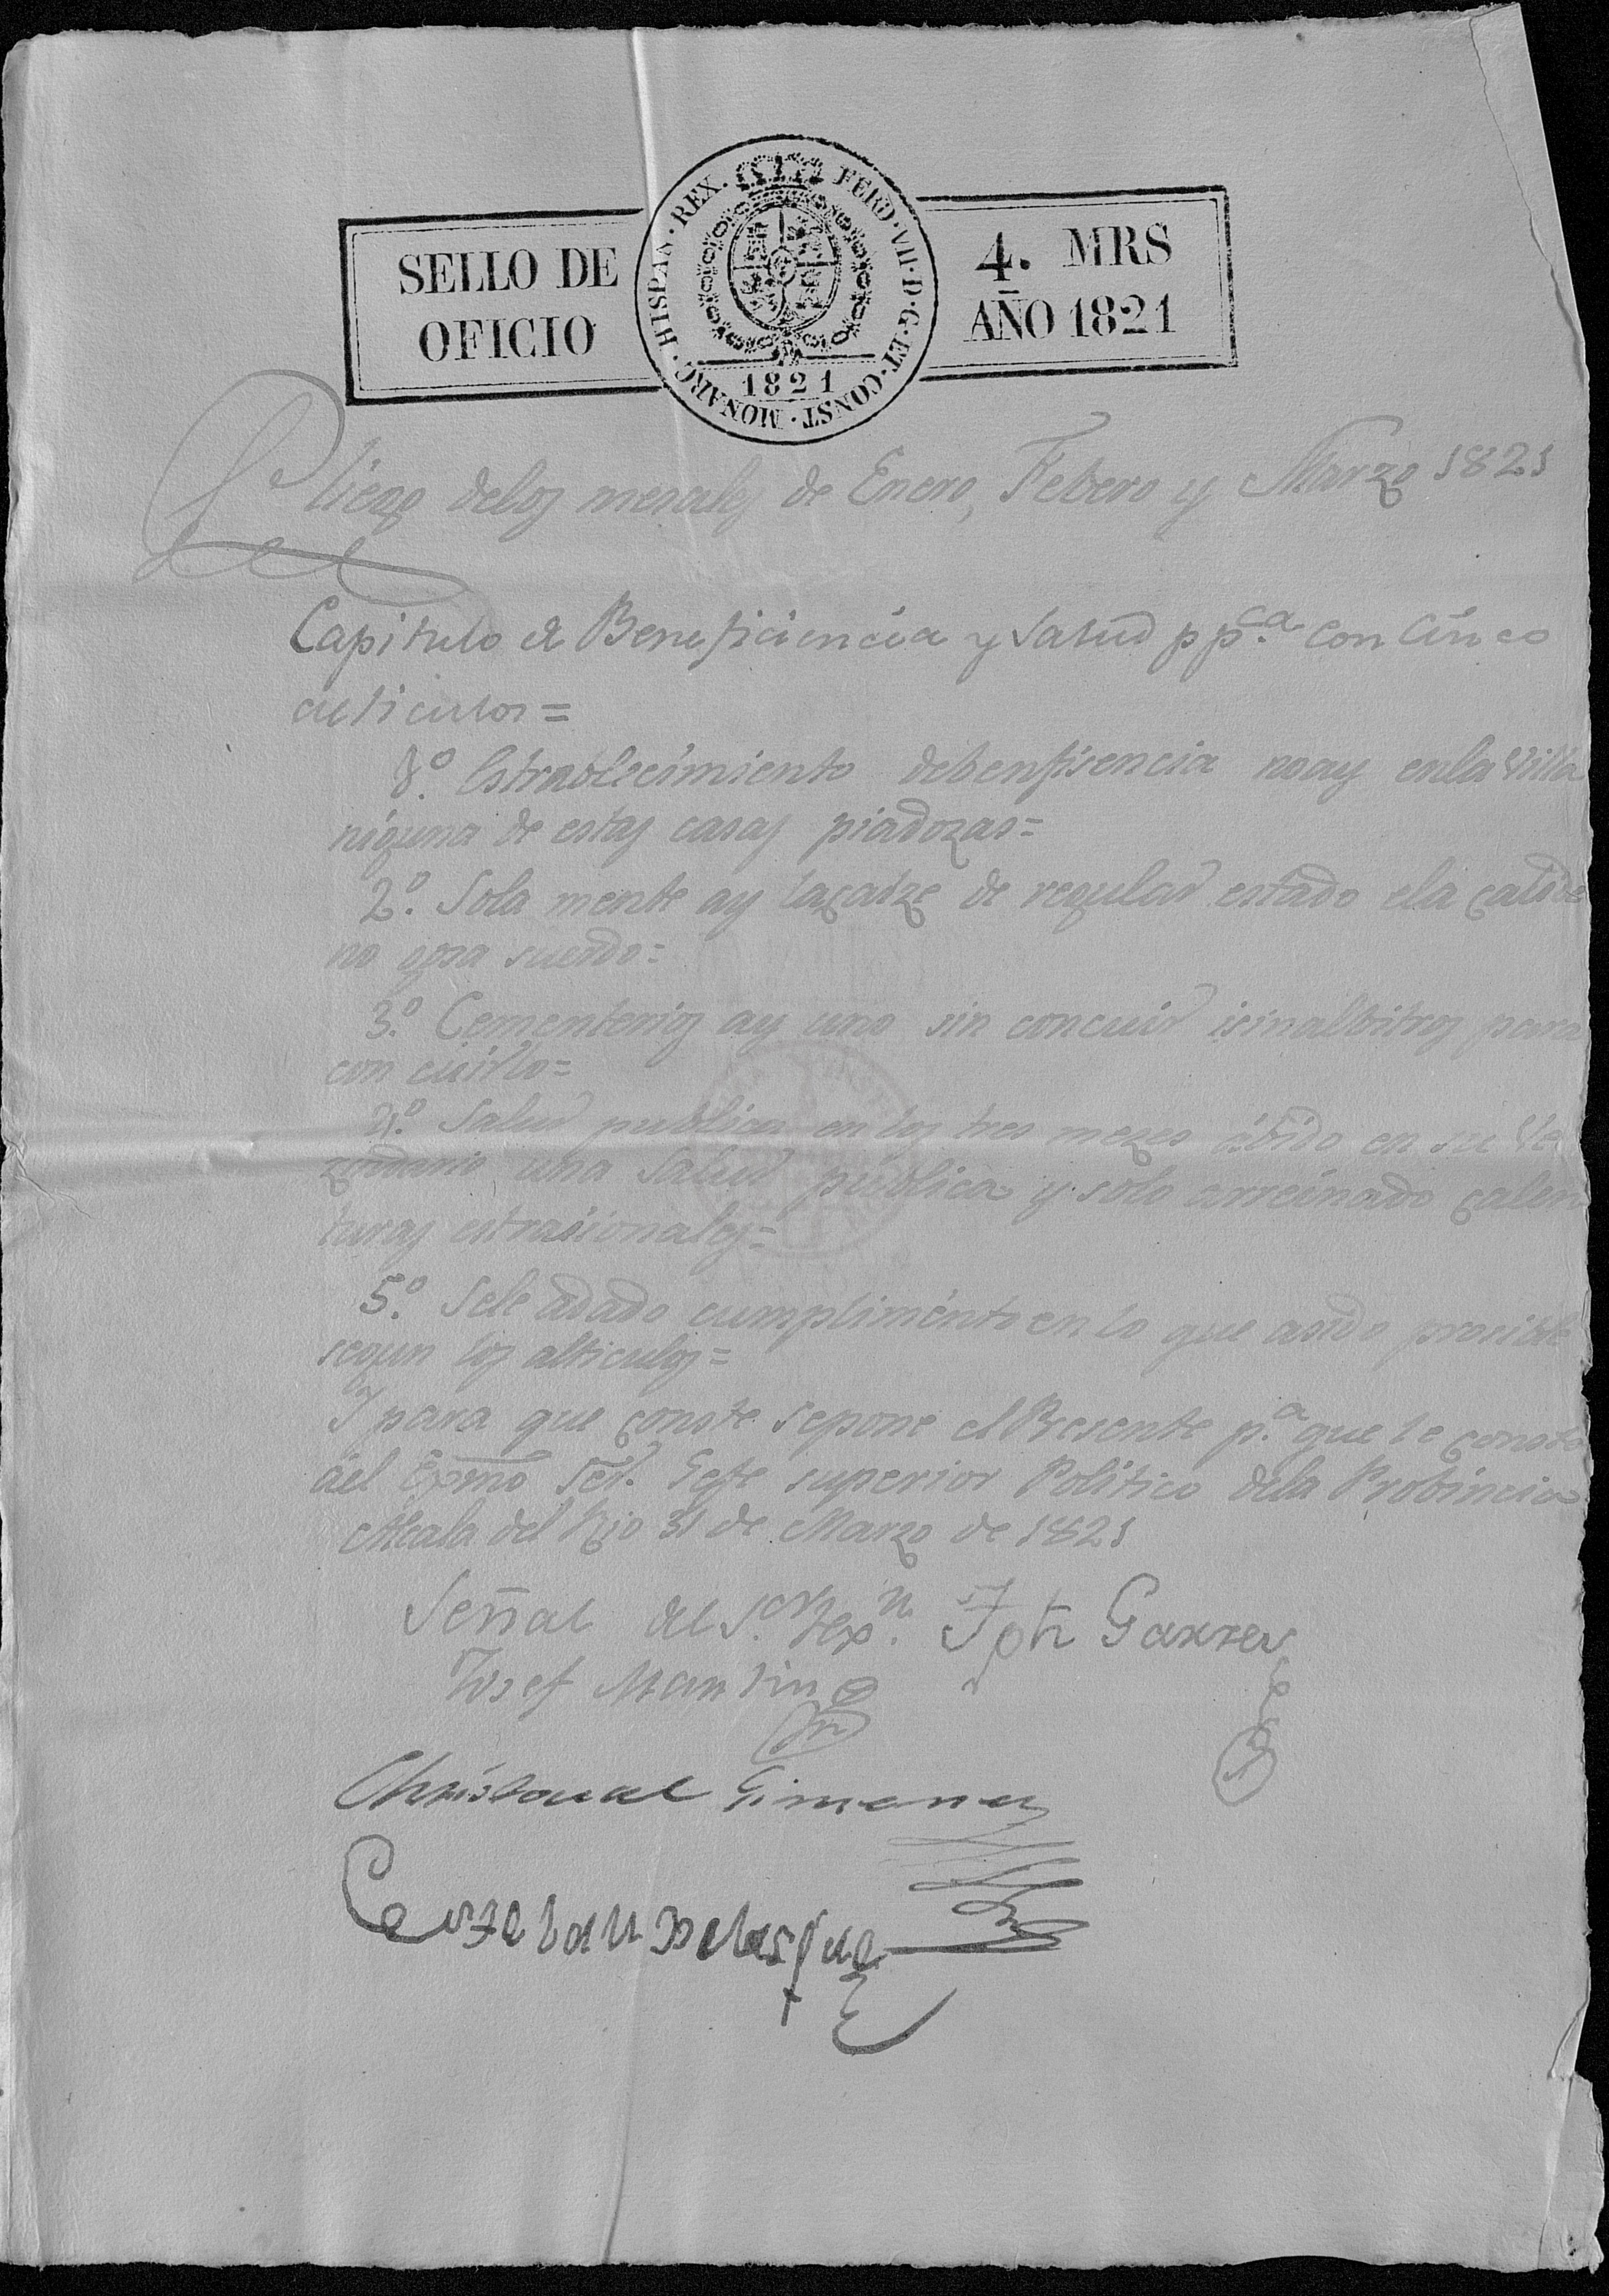 SELLO DE
OFICIO
HISPAN · REX. FERD · VII · D · G · ET · CONST · MONARC ·
1821
4. MRS
AÑO 1821
Pliego delos mesales de Enero, Febero y Marzo 1821
Capitulo de Beneficiencia y Salud ppca. con Cinco
articulos =
1º. Establecimiento debenfisencia noay enla Villa
niguna de estas casas piadozas =
2º. Sola mente ay la çarze de regular estado ela
no goza sueldo =
3º. Cementerios ay uno sin concuir isinalbitros para
con cuirlo =
4º. Salud publica en los tres mezes ábido en su Ve
zindario una Salud publica y solo arreinado çalen
turas estasionales =
5º. Sele adado cumplimento en lo que asido
segun los alticulos =
I para que çonste sepone el Presente pa. que le çonste
ael Exmo Señ. Gefe superior Politico dela Probincia
Alcala del Rio 31 de Marzo de 1821
Señal del Sr. Jph Garzer
Josef Martin
Christoual Gimenez
Esteban Belasquez